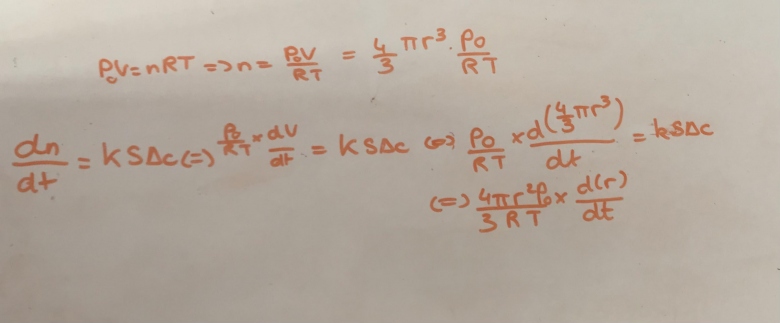 P₀V = nRT => n = P₀V/RT = 4/3 πr³ · P₀/RT
dn/dt = kSΔc (=) P₀/RT × dV/dt = kSΔc (=) P₀/RT × d(4/3 πr³)/dt = kSΔc
(=) 4πr²P₀/3RT × d(r)/dt